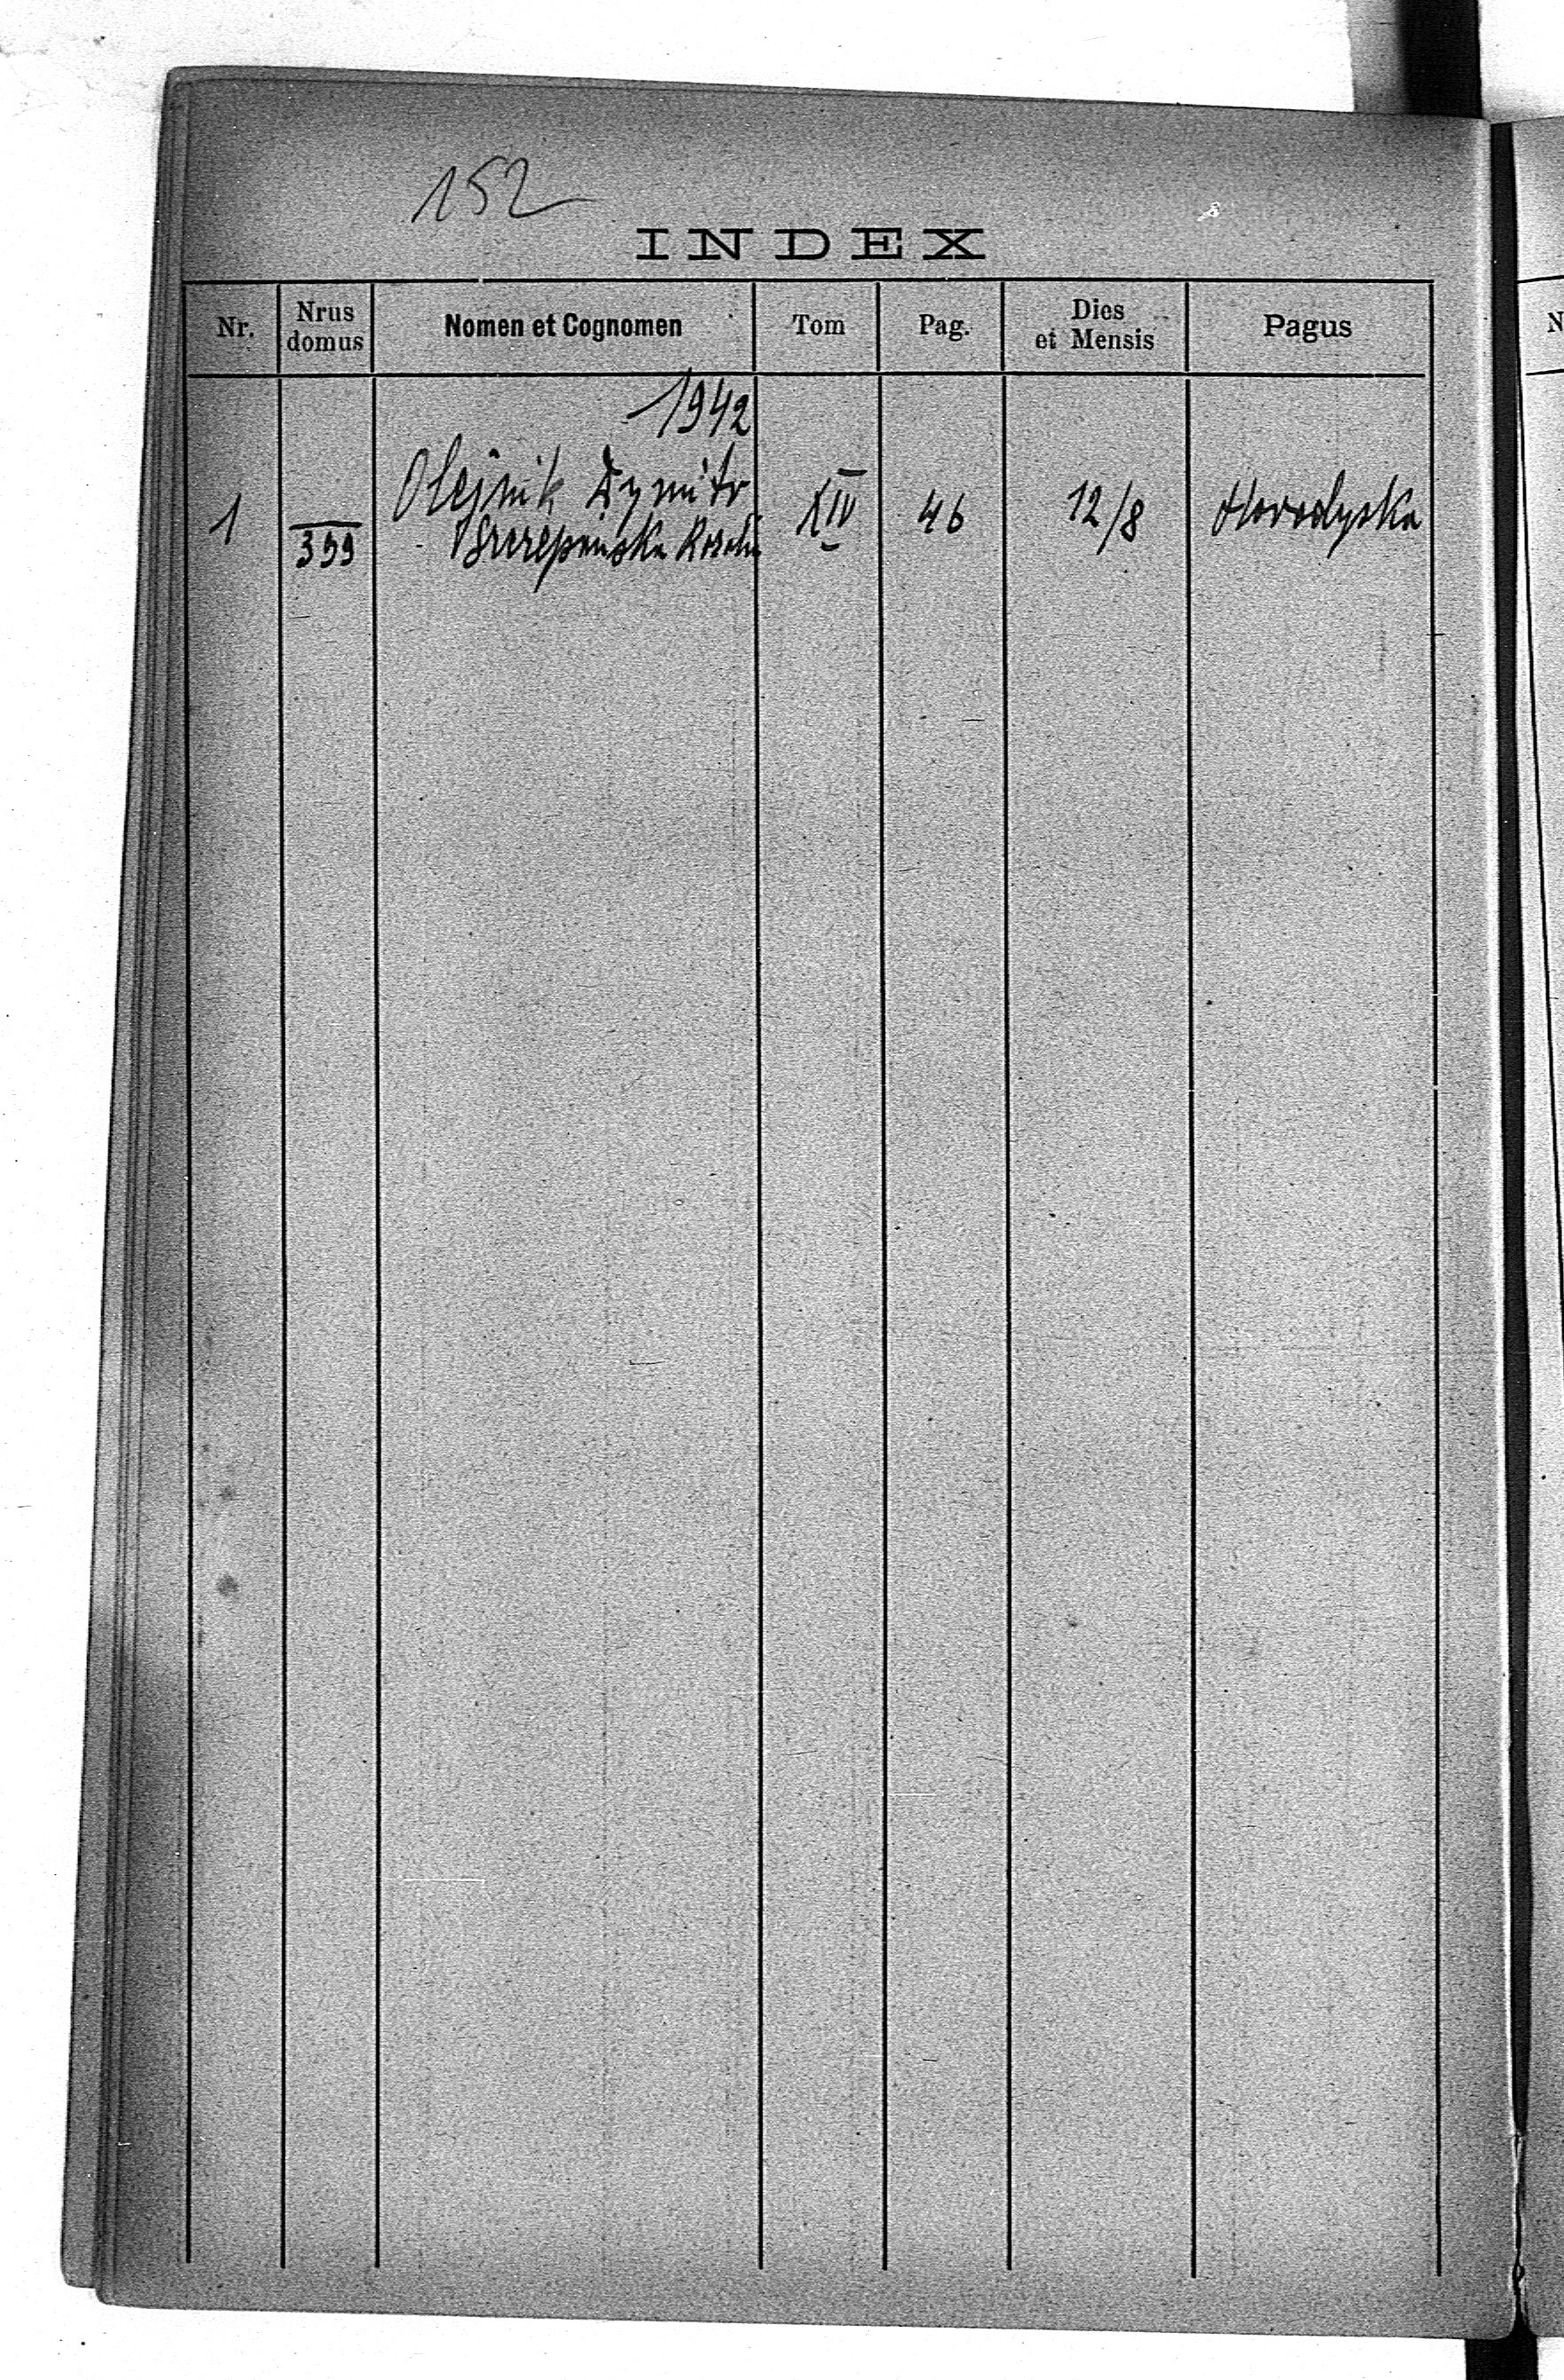 152
INDEX
Nr. Nrus domus Nomen et Cognomen Tom Pag. Dies et Mensis Pagus
1942
Olejnik Dymitr
1 399 XIV 46 12/8 Horodyska